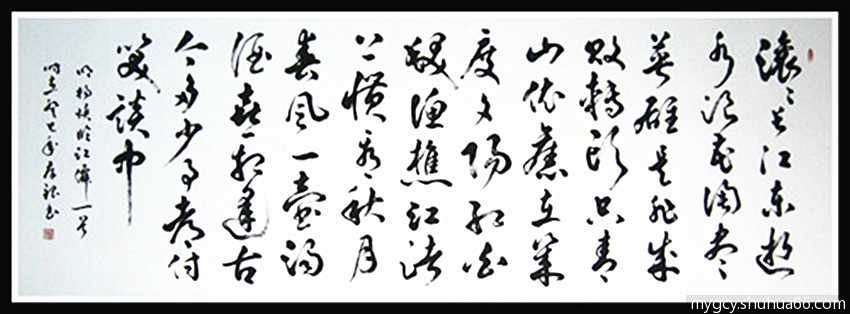 滚滚长江东逝
水浪花淘尽
英雄是非成
败转头空青
山依舊在几
度夕阳红白
发渔樵江渚
上惯看秋月
春风一壶浊
酒喜相逢古
今多少事都付
笑谈中
明杨慎临江仙一首
书
mygcy.shuhua66.com